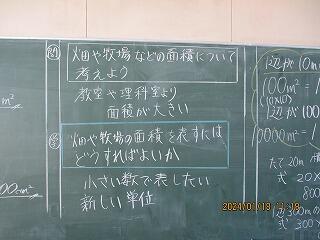 畑や牧場などの面積について
考えよう
教室や理科室より
面積が大きい
畑や牧場の面積を表すには
どうすればよいか
小さい数で表したい
新しい単位
m²
00cm²
1辺が10m
100m²=1
(10×10)
辺が100
10000m²=1
たて20m
式 20×
800
辺300mの
式 300×
2024/01/19 11:19